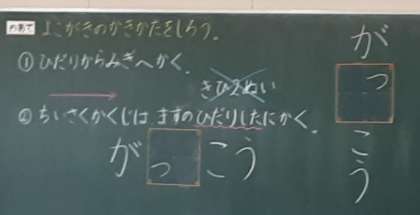 めあて よこがきのかきかたをしろう。
①ひだりからみぎへかく。
②ちいさくかくじは ますのひだりしたにかく。
がっこう
がっこう